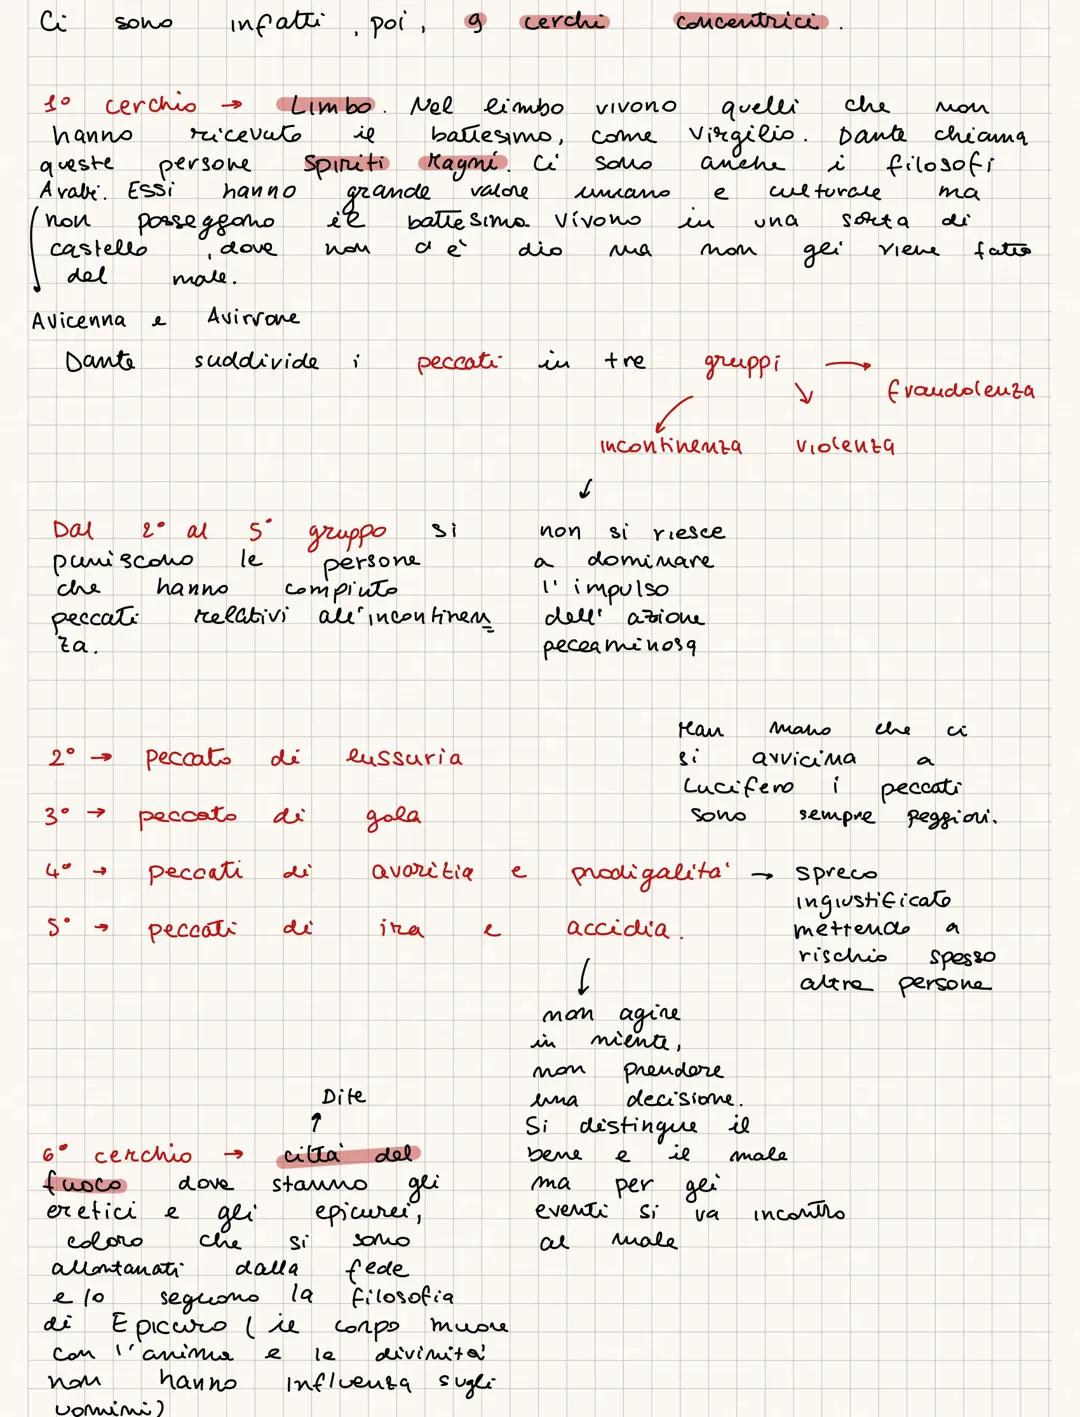 Ci sono infatti, poi, 9 cerchi concentrici.
1° cerchio → Limbo. Nel limbo vivono quelli che non
hanno ricevuto il battesimo, come Virgilio. Dante chiama
queste persone Spiriti Magni. Ci sono anche i filosofi
Arabi. Essi hanno grande valore umano e culturale ma
non posseggono il battesimo. Vivono in una sorta di
castello, dove non c'è dio ma non gli viene fatto
del male.
Avicenna e Avirroe
Dante suddivide i peccati in tre gruppi →
fraudolenza
incontinenza violenza
Dal 2° al 5° gruppo si
puniscono le persone
che hanno compiuto
peccati relativi all'incontinen
za.
non si riesce
a dominare
l'impulso
dell'azione
peccaminosa
Man mano che ci
si avvicina a
Lucifero i peccati
sono sempre peggiori.
2° → peccato di lussuria
3° → peccato di gola
4° → peccati di avaritia e prodigalità → spreco
ingiustificato
mettendo a
rischio spesso
altre persone
5° → peccati di ira e accidia.
non agire
in niente,
non prendere
una decisione.
Si distingue il
bene e il male
ma per gli
eventi si va incontro
al male
Dite
6° cerchio → città del
fuoco dove stanno gli
eretici e gli epicurei,
coloro che si sono
allontanati dalla fede
e lo seguono la filosofia
di Epicuro (il corpo muore
con l'anima e le divinità
non hanno influenza sugli
uomini)